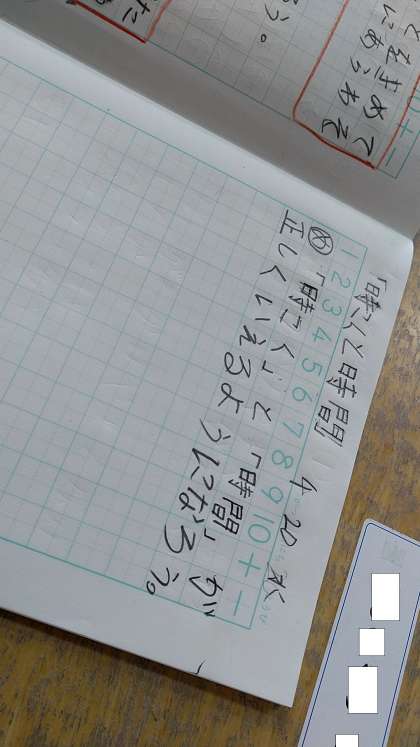 「時こくと時間」
4 20 水
1 2 3 4 5 6 7 8 9 10 + −
め 「時こく」と「時間」が
正しくいえるようになろう。
にあらわそ
う。